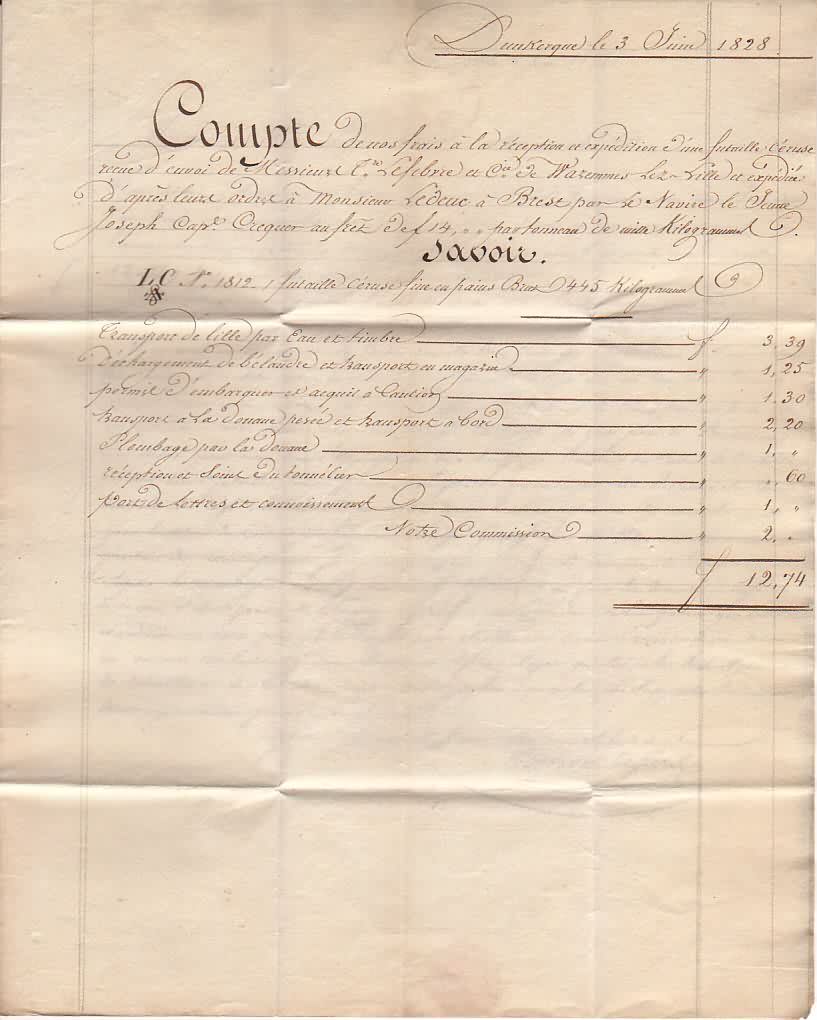 Dunkerque le 3 Juin 1828
Compte de nos frais à la réception et expédition d'une futaille Céruse
reçue d'envoi de Messieurs Lefebvre et Cie de Wazemmes Lez-Lille et expédiée
d'après leurs ordres à Monsieur Leduc à Brest par le Navire le Jeune
Joseph Cap.e Crequer au frêt de f 14, " " par tonneau de mille Kilogrammes.
Savoir.
L C N.o 1812 1 futaille Céruse fine en pains Brut 445 Kilogrammes
Transport de lille par Eau et timbre f 3,39
Déchargement de bélandre et transport en magazin " 1,25
permis d'embarquer et acquit à Caution " 1.30
transport à La Douane pesée et transport à bord " 2,20
Plombage par la Douane " 1, "
réception et Soins du tonnélier " ", 60
port de Lettres et connoissements " 1, "
Notre Commission " 2, "
f 12,74